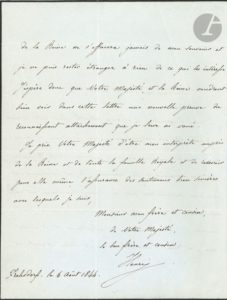 de la Reine ne s'effacera jamais de mon souvenir et
je ne puis rester étranger à rien de ce qui les intéresse
J'espère donc que Votre Majesté et la Reine voudront
bien voir dans cette lettre une nouvelle preuve du
reconnaissant attachement que je leur ai voué.
Je prie Votre Majesté d'être mon interprète auprès
de la Reine et de toute la famille Royale et de recevoir
pour elle même l'assurance des sentiments bien sincères
avec lesquels je suis,
Monsieur mon frère et cousin,
de Votre Majesté,
le bon frère et cousin,
Henri
le 6 Août 1844.